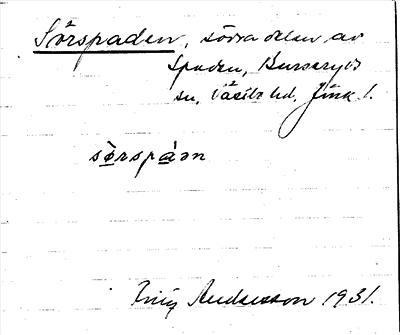 Sörspaden, södra delen av
Spaden, Burseryds
sn, Västbo hd, Jönk. l.
sö̀rspá̱ən
Andersson 1931.